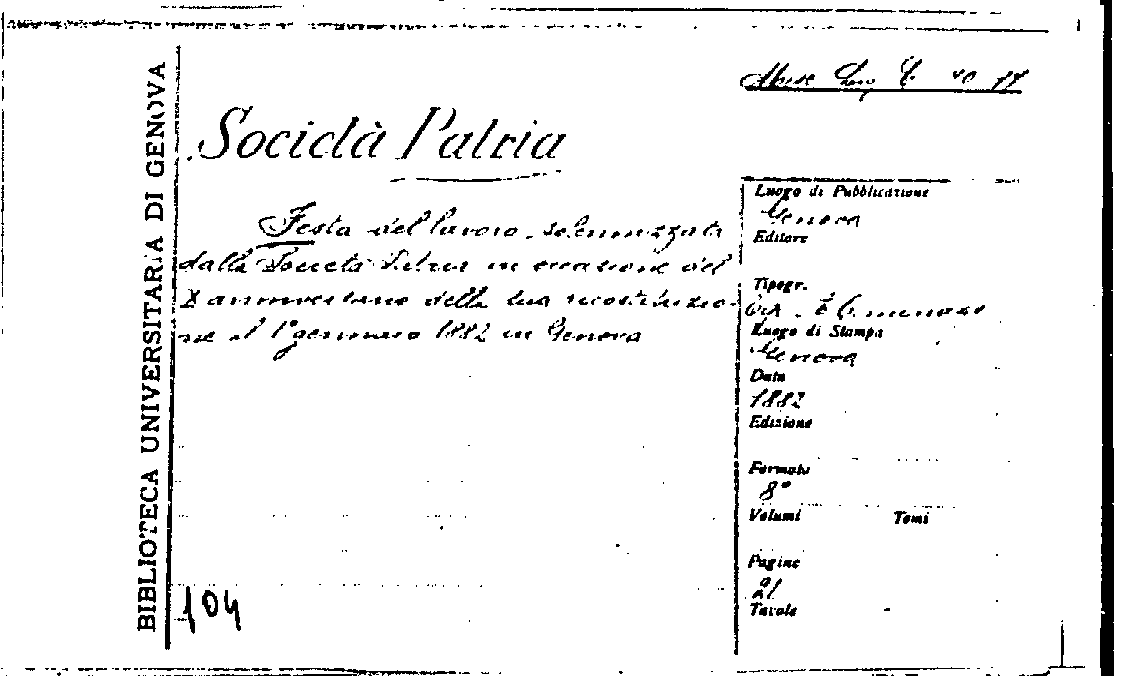 BIBLIOTECA UNIVERSITARIA DI GENOVA
Società Patria
Festa del lavoro solennizzata
dalla Società Patria in occasione del
X anniversario della sua ricostituzio-
ne il 1° gennaio 1882 in Genova
104
Luogo di Pubblicazione
Genova
Editore
Tipogr.
Luogo di Stampa
Genova
Data
1882
Edizione
Formato
8°
Volumi Tomi
Pagine
21
Tavole